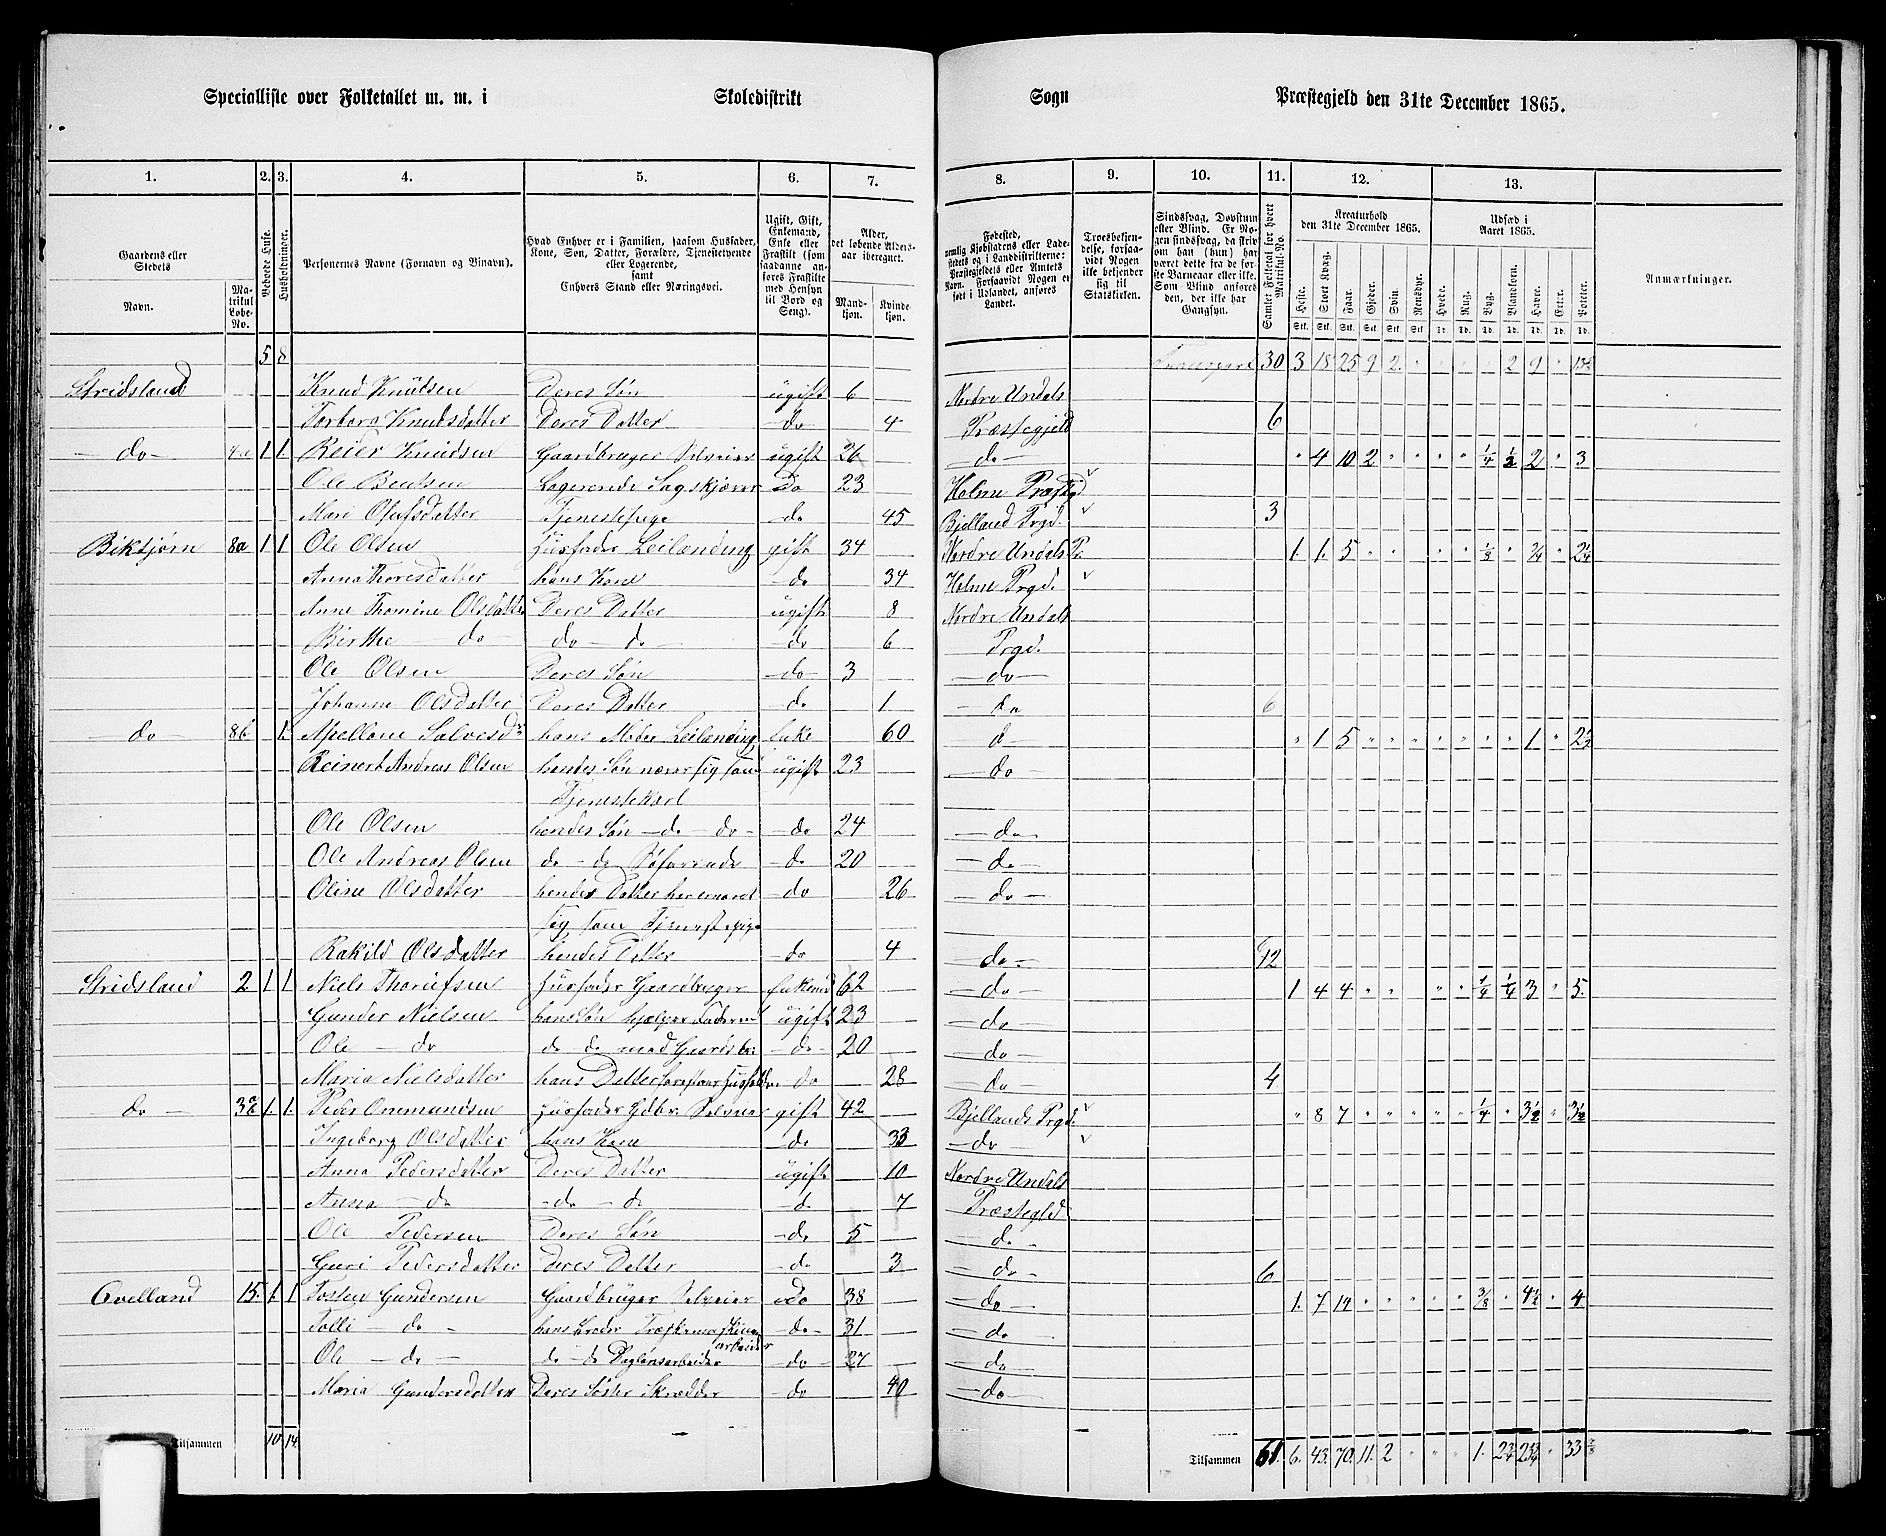 Specialliste over Folketallet m. m. i Skoledistrikt Sogn Præstegjeld den 31te December 1865.
1. 2. 3. 4. 5. 6. 7. 8. 9. 10. 11. 12. 13.
Gaardens eller Stedets
Navn.
Matrikul Løbe-No.
Beboede Huse.
Husholdninger.
Personernes Navne (Fornavn og Vinavn).
Hvad Enhver er i Familien, saasom Husfader, Kone, Søn, Datter, Forældre, Tjenestetyende eller Logerende, samt
Enhvers Stand eller Næringsvei.
Ugift, Gift, Enkemand, Enke eller Fraskilt (som saadanne anføres Fraskilte med Hensyn til Bord og Seng).
Alder, det løbende Aldersaar iberegnet.
Mandkjøn.
Kvindekjøn.
Fødested, nemlig Kjøbstadens eller Ladestedets og i Landdistrikterne: Præstegjeldets eller Amtets Navn. Forsaavidt Nogen er født i Udlandet, anføres Landet.
Troesbekjendelse, forsaavidt Nogen ikke bekjender sig til Statskirken.
Sindssvag, Døvstum eller Blind. Er Nogen sindssvag, da skrives om han (hun) har været dette fra de første Barneaar eller ikke. Som Blind anføres den, der ikke har Gangsyn.
Samlet Folketal for hvert Matrikul-No.
Kreaturhold den 31te December 1865.
Heste. Stort Kvæg. Faar. Gjeder. Svin. Rensdyr.
Udsæd i Aaret 1865.
Hvede. Rug. Byg. Blandkorn. Havre. Erter. Poteter.
Anmærkninger.
5 8 30 3 18 25 9 2 " " " " 2 9 " 13½
Stridsland Knud Knudsen Deres Søn ugift 6 Nordre Undals
Torbora Knudsdatter Deres Datter do 4 Præstegjeld 6
do 4a 1 1 Reier Knudsen Gaardbruger Selveier ugift 26 do " 4 10 2 " " " " ¼ ½ 2 " 3
Ole Bentsen Logerende Sagskjærer do 23 Holme Præstgd
Mari Olufsdatter Tjenestepige do 45 Bjelland Prgd. 3
Bikstjørn 8a 1 1 Ole Olsen Husfader Leilænding gift 34 Nordre Undals Pr. 1 1 5 " " " " " ⅛ " ¾ " 2¼
Anna Thoresdatter hans Kone do 34 Holme Prgd.
Anne Thomine Olsdatter Deres Datter ugift 8 Nordre Undals
Birthe do do do do 6 Prgd.
Ole Olsen Deres Søn do 3 do
Johanne Olsdatter Deres Datter do 1 do 6
do 8b 1 Apellone Salvesdr hans Moder Leilænding Enke 60 d " 1 5 " " " " " " " 1 " 2½
Reinert Andreas Olsen hendes Søn nærer sig som ugift 23 do
Tjenestekarl
Ole Olsen hendes Søn do do do 24 do
Ole Andreas Olsen do do Søfarende do 20 do
Oline Olsdatter hendes Datter har ernæret do 26 do
sig som Tjenestepige
Rakild Olsdatter hendes Datter do 4 do 12
Stridsland 2 1 1 Niels Thorisfsen Husfader Gaardbruger Enkemd 62 do 1 4 4 " " " " ¼ ¼ 3 " 5
Gunder Nielsen hans Søn hjælper Faderen ugift 23 do
Ole do do do med Gaardsbr: do 20 do
Maria Nielsdatter hans Datter forestaar Husholdn. do 28 do 4
do 3 1 1 Peder Ommundsen Husfader Gdbr. Selveier gift 42 Bjellands Prgd. " 8 7 " " " " " ¼ " 3½ " 3½
Ingeborg Olsdatter hans Kone do 33 do
Anna Pedersdatter Deres Datter ugift 10 Nordre Undals
Anna do do d d 7 Præstegld
Ole Pedersen Deres Søn do 5 do
Guri Pedersdatter Deres Datter do 3 do 6
Qvelland 15 1 1 Tosten Gundersen Gaardbruger Selveier do 38 do 1 7 14 " " " " " ⅜ " 4½ " 4
Tolli do hans Broder Træskemaskin do 31 do
arbeider
Ole do do do Daglønsarbeider do 27 do
Maria Gundersdatter Deres Søster Skrædder do 40 do
Tilsammen 10 14 Tilsammen 61 6 43 70 11 2 " " " 1 " 33⅞